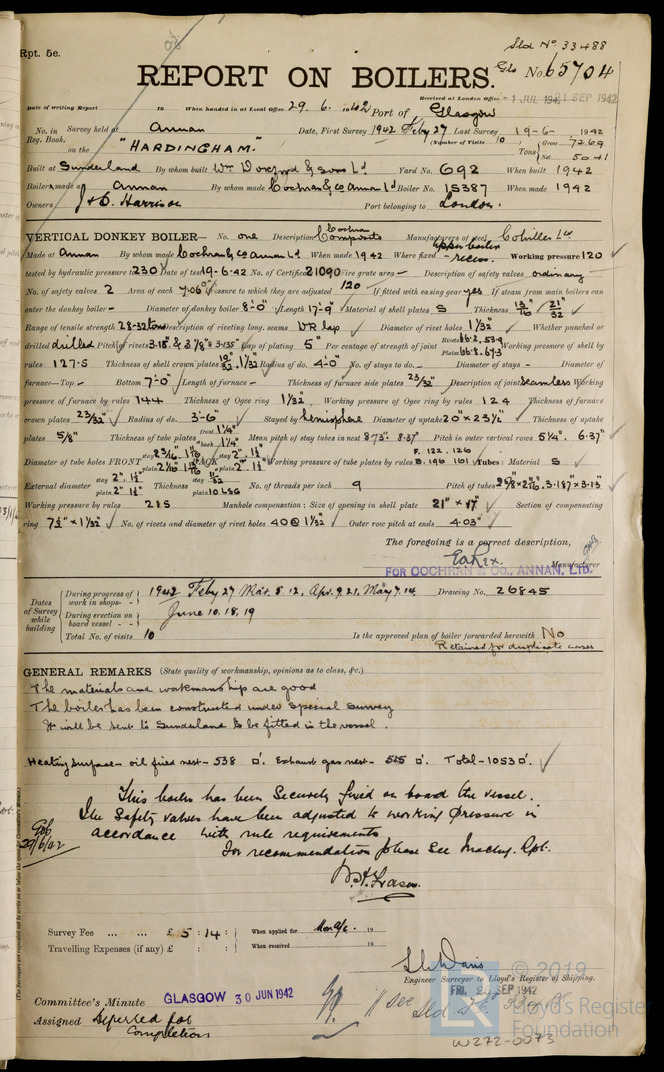 Rpt. 5e.
Sld No. 33488
Gls No. 65704
REPORT ON BOILERS.
Received at London Office 1 JUL 194 21 SEP 1942
Date of writing Report 19 When handed in at Local Office 29. 6. 1942 Port of Glasgow
No. in Survey held at Annan Date, First Survey 1942 Feby 27 Last Survey 19-6- 1942
Reg. Book. (Number of Visits 10) Gross 7269
on the "HARDINGHAM." Tons Net 5041
Built at Sunderland By whom built Wm Doxford & Sons Ld Yard No. 692 When built 1942
Boilers made at Annan By whom made Cochran & Co Annan Ld Boiler No. 15387 When made 1942
Owners J & C. Harrison Port belonging to London.
VERTICAL DONKEY BOILER— No. one Description Cochran Composite Manufacturers of steel Colvilles Ld
Made at Annan By whom made Cochran & Co Annan Ld When made 1942 Where fixed upper boiler recess. Working pressure 120
tested by hydraulic pressure to 230 Date of test 19-6-42 No. of Certificate 21090 Fire grate area — Description of safety valves ordinary
No. of safety valves 2 Area of each 7.06" Pressure to which they are adjusted 120 If fitted with easing gear yes If steam from main boilers can
enter the donkey boiler - Diameter of donkey boiler 8'-0" Length 17'-9" Material of shell plates S Thickness 13/16" 21/32"
Range of tensile strength 28-32 tons Description of riveting long. seams DR lap Diameter of rivet holes 1 1/32" Whether punched or
drilled drilled Pitch of rivets 3.15" & 3 1/8" & 3.135" Lap of plating 5" Per centage of strength of joint Rivets 66.2, 53.9 Plates 66.8. 67.3 Working pressure of shell by
rules 127.5 Thickness of shell crown plates 19/32", 1 1/32" Radius of do. 4'-0" No. of stays to do. — Diameter of stays - Diameter of
furnace—Top - Bottom 7'-0" Length of furnace — Thickness of furnace side plates 23/32" Description of joint seamless Working
pressure of furnace by rules 144 Thickness of Ogee ring 1 1/32" Working pressure of Ogee ring by rules 124 Thickness of furnace
crown plates 23/32" Radius of do. 3'-6" Stayed by hemisphere Diameter of uptake 20" x 23 1/2" Thickness of uptake
plates 5/8" Thickness of tube plates front 1 1/4" back 1 1/4" Mean pitch of stay tubes in nest 8.73" 8.37" Pitch in outer vertical rows 5 1/4". 6.37"
Diameter of tube holes FRONT stay plain BACK stay 2". 1 1/2" plain 2". 1 1/2" Working pressure of tube plates by rules F. 122. 126 B. 196 161 Tubes: Material S
External diameter stay 2". 1 1/2" plain 2". 1 1/2" Thickness stay plain 10 LSG No. of threads per inch 9 Pitch of tubes
Working pressure by rules 215 Manhole compensation: Size of opening in shell plate 21" x 17" Section of compensating
ring 7 1/2" x 1 1/32" No. of rivets and diameter of rivet holes 40 @ 1 1/32" Outer row pitch at ends 4.03"
The foregoing is a correct description,
Manufacturer
FOR COCHRAN & CO., ANNAN, LTD.
Dates of Survey while building
During progress of work in shops - - 1942 Feby 27 Mar. 5. 12, Apr. 9. 21, May 7. 14 Drawing No. 26845
During erection on board vessel - - June 10. 18. 19
Total No. of visits 10 Is the approved plan of boiler forwarded herewith No
Retained for duplicate cases
GENERAL REMARKS (State quality of workmanship, opinions as to class, &c.)
The materials and workmanship are good
The boiler has been constructed under special survey
It will be sent to Sunderland to be fitted in the vessel.
Heating Surface— oil fired nest— 538 □'. Exhaust gas nest— 515 □'. Total—1053 □'.
This boiler has been securely fixed on board the vessel.
The safety valves have been adjusted to working pressure in
accordance with rule requirements
29/6/42
For recommendation please see Machy. Rpt.
Survey Fee ... ... £ 5 : 14 : When applied for 19
Travelling Expenses (if any) £ : : When received 19
Engineer Surveyor to Lloyd's Register of Shipping.
Committee's Minute GLASGOW 30 JUN 1942
FRI. 25 SEP 1942
Assigned Deferred for
Completion
© 2019
Lloyd's Register
Foundation
W272-0073